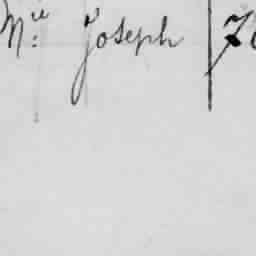 Mie: Joseph